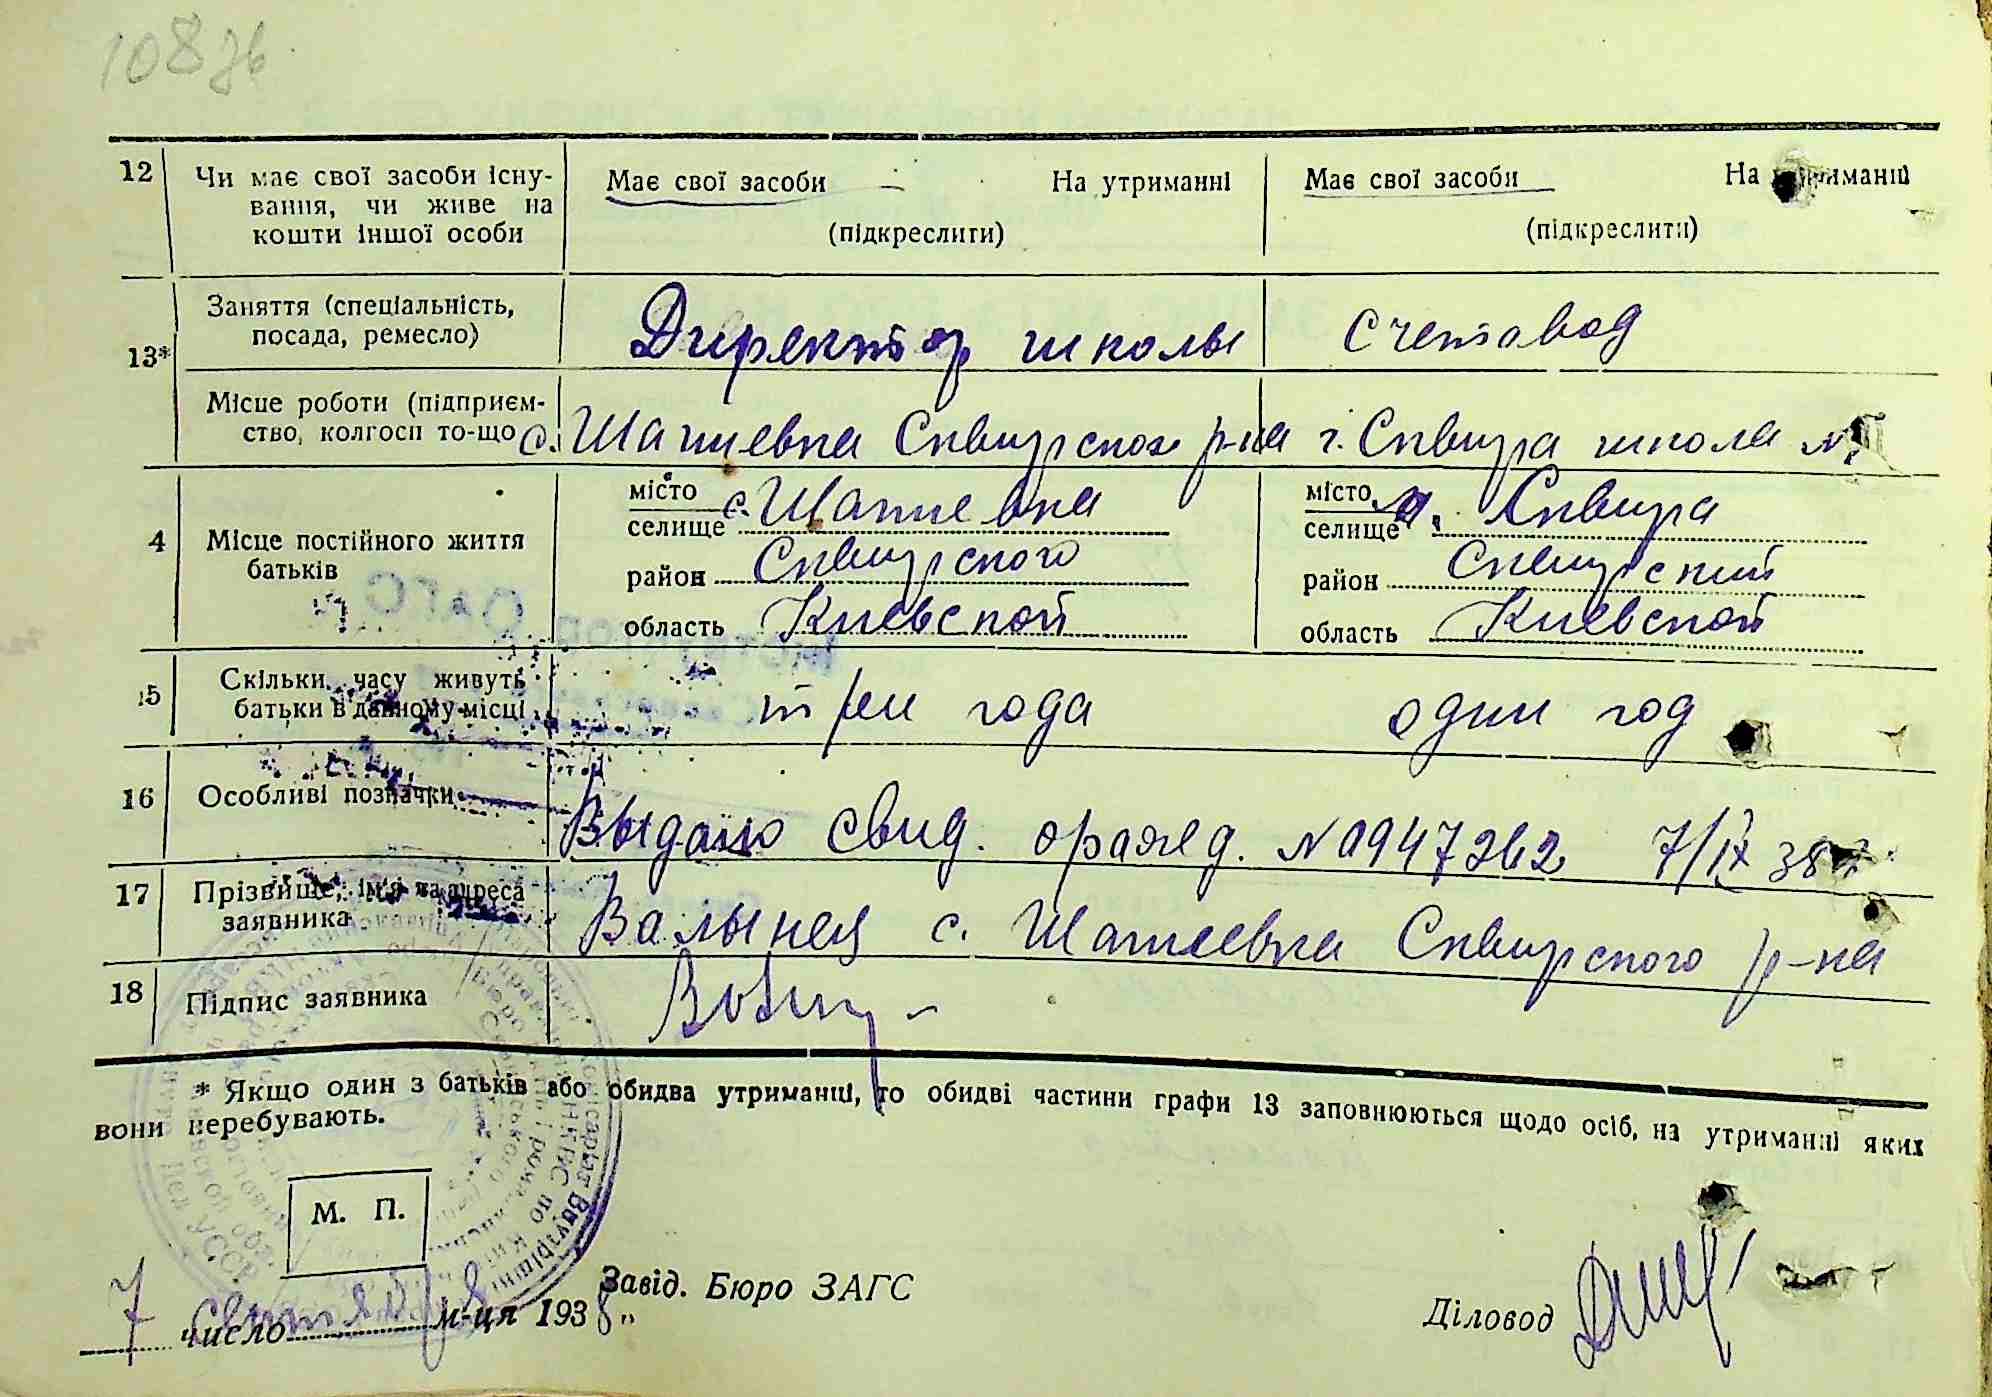 108зв
12 Чи має свої засоби існу- Має свої засоби На утриманні Має свої засоби На утриманні
вання, чи живе на
кошти іншої особи (підкреслити) (підкреслити)
13* Заняття (спеціальність, Директор школы Счетовод
посада, ремесло)
Місце роботи (підприєм-
ство, колгосп то-що с. Шапиевка Сквирског р-на г. Сквира школа №
4 Місце постійного життя місто с. Шапиевка місто Сквира
батьків селище селище
район Сквирского район Сквирский
область Киевской область Киевской
15 Скільки часу живуть три года один год
батьки в данному місці
16 Особливі позначки Выдано свид. о рожд. № 0947262 7/IX 38
17 Прізвище, ім'я та адреса Валынец с. Шапиевка Сквирского р-на
заявника
18 Підпис заявника
* Якщо один з батьків або обидва утриманці, то обидві частини графи 13 заповнюються щодо осіб, на утриманні яких
вони перебувають.
М. П.
Завід. Бюро ЗАГС
7 число м-ця 1938 „
Діловод